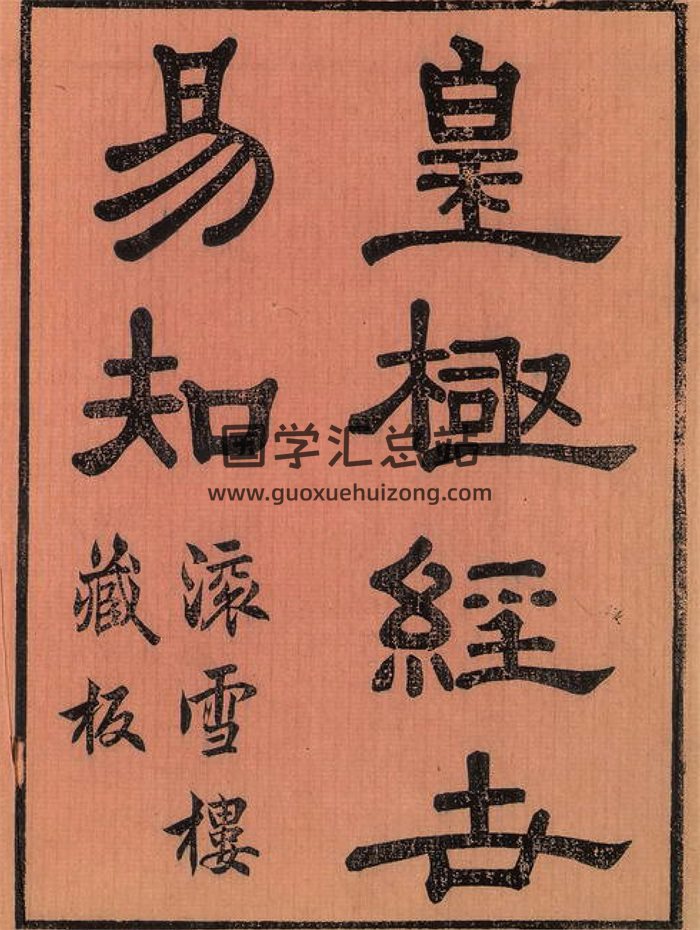 皇極經世
易知
滚雪樓
藏板
国学汇总站
www.guoxuehuizong.com